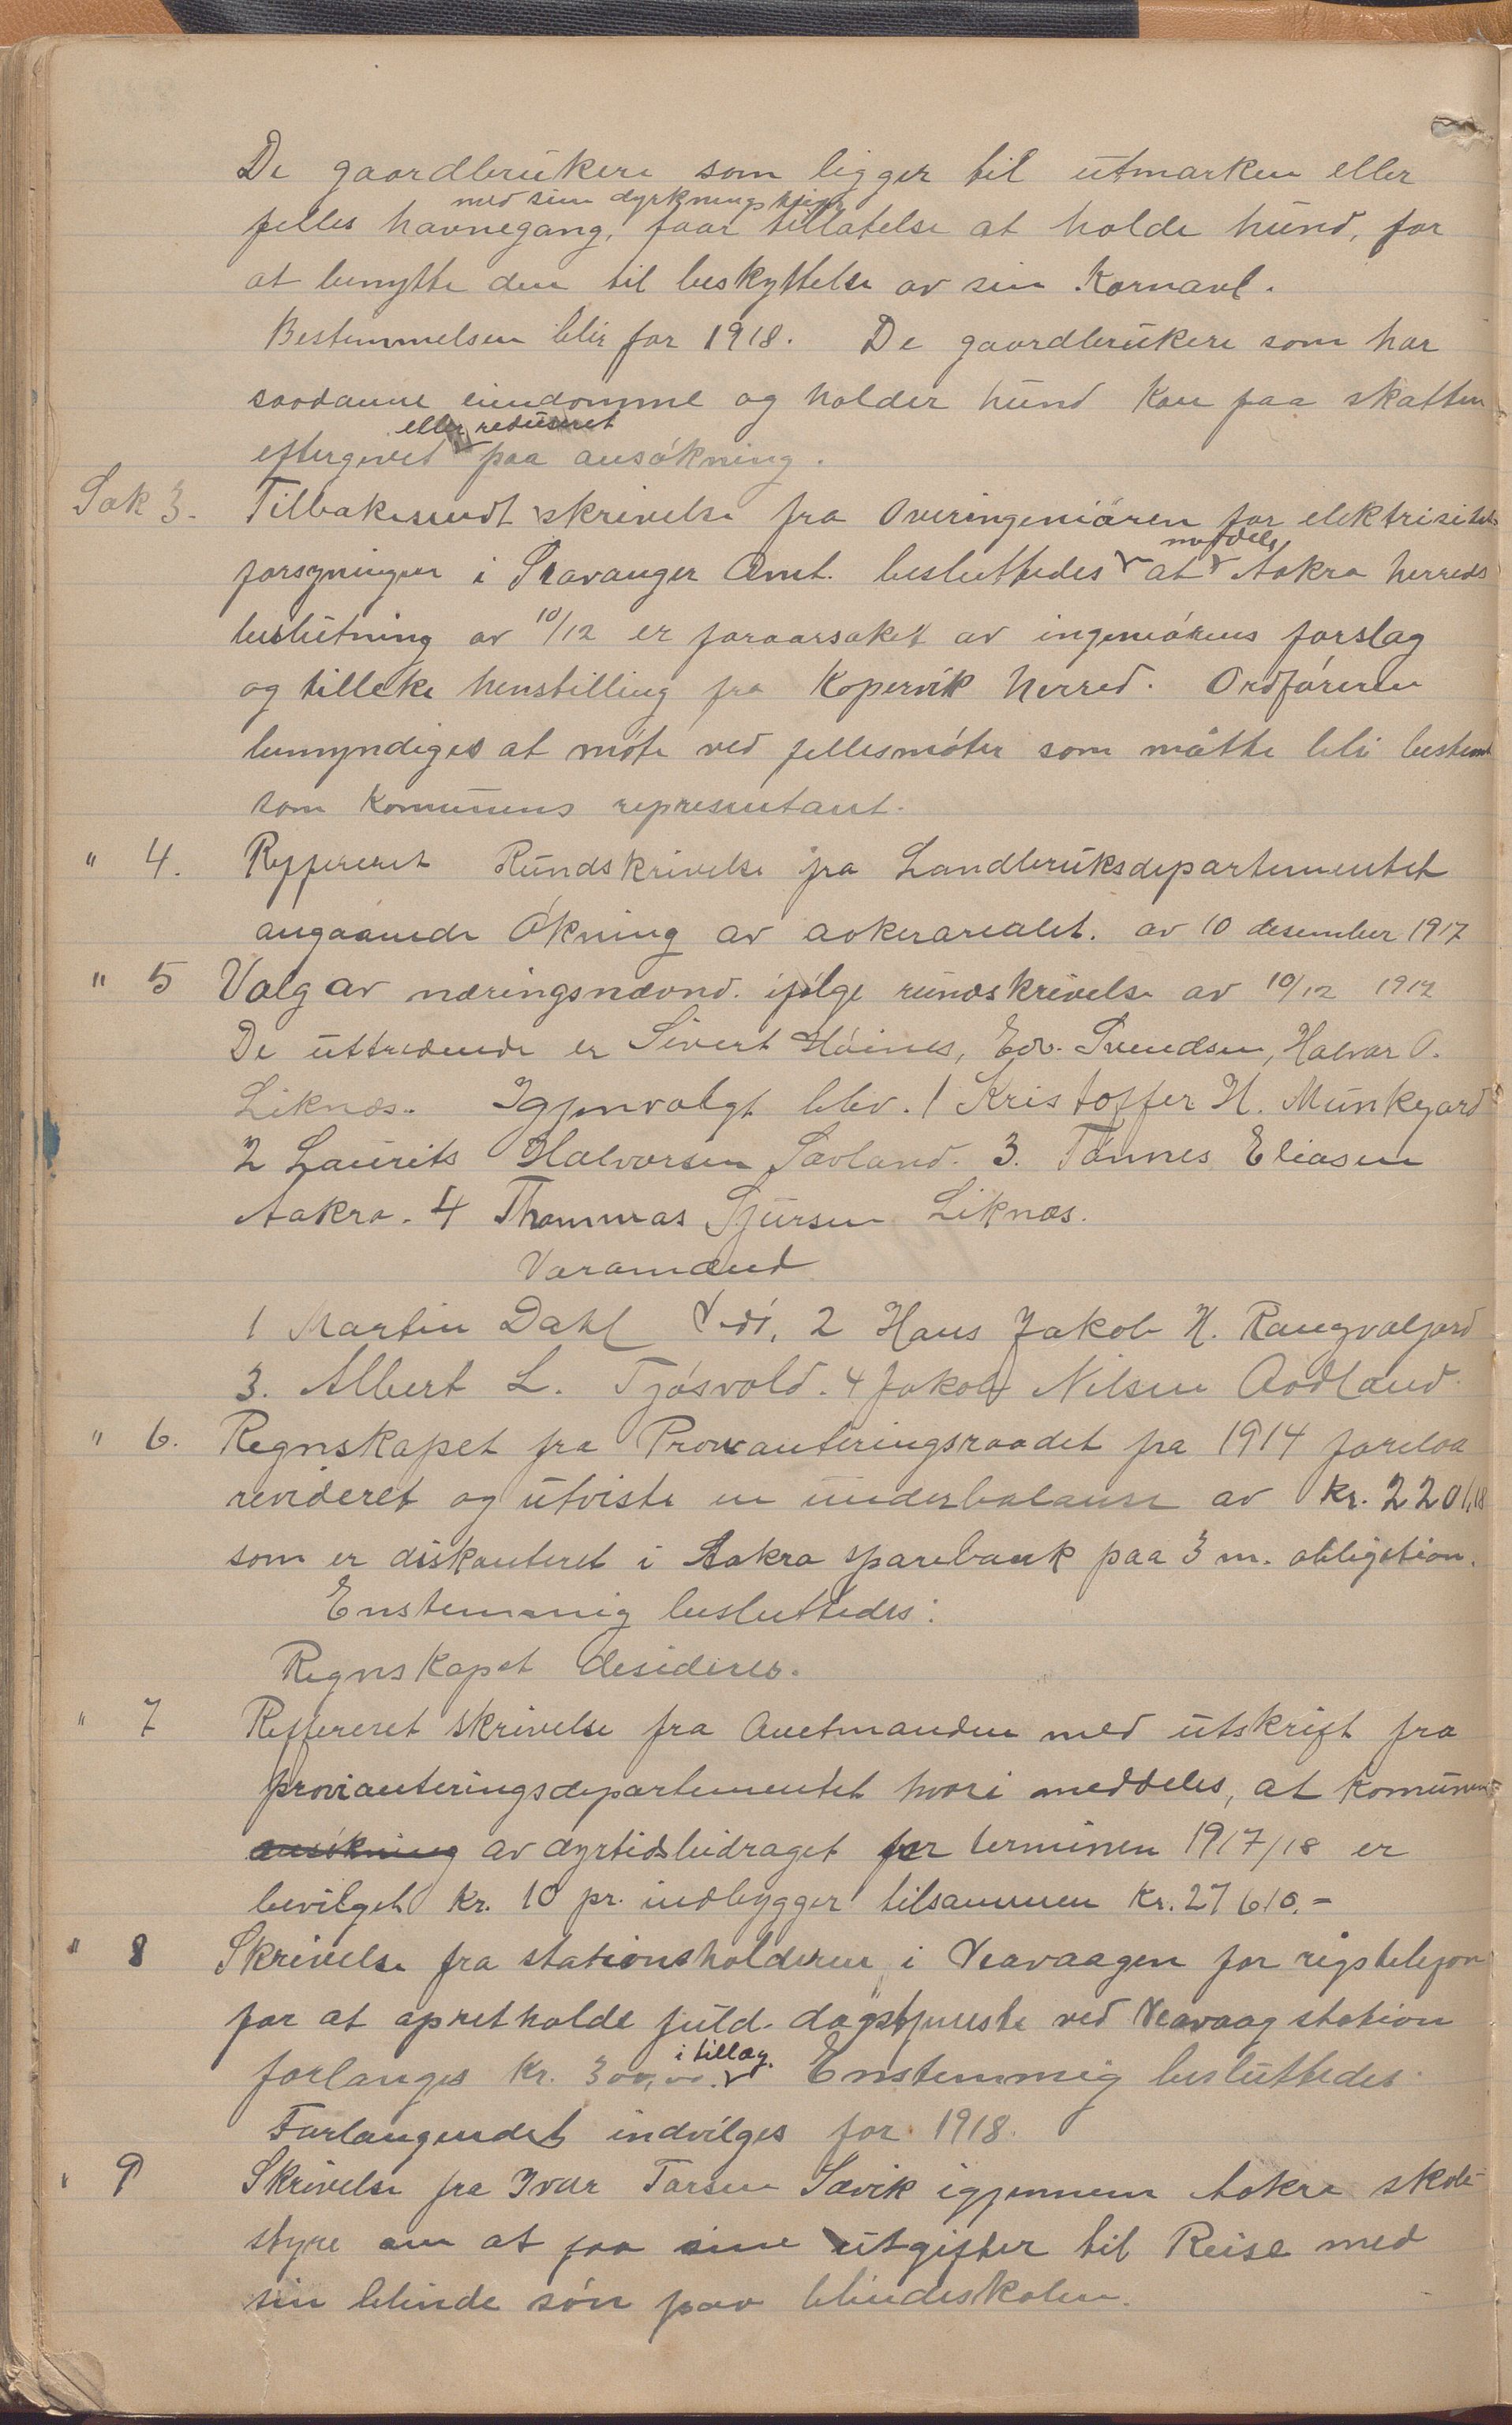 De gaardbrukere som ligger til utmarken eller
med sin dyrkningsteig
felles havnegang, faar tillatelse at holde hund, for
at benytte den til beskyttelse av sin Kornavl.
Bestemmelsen blir for 1918. De gaardbrukere som har
saadanne eiendomme og holder hund kan faa skatten
eller redusert
eftergivet paa ansökning.
Sak 3. Tilbakesendt skrivelse fra Overingeniören for elektrisitets
forsyningen i Stavanger Amt. besluttedes meddelt at Aakra herreds
beslutning av 10/12 er foraarsaket av ingeniörens forslag
og tilleke henstilling fra Kopervik herred. Ordföreren
bemyndiges at möte ved fellesmöter som måtte bli bestemt
som Komunens representant.
" 4. Reffereret Rundskrivelse fra Landbruksdepartementet
angaaende Ökning av aakerarealet. av 10 desember 1917
" 5 Valg av næringsnævnd. ifölge rundskrivelse av 10/12 1917
De uttredende er Sivert Höines, Edv. Svendsen, Halvar O.
Liknæs. Igjenvalgt blev. 1 Kristoffer H. Munkejord
2 Laurits Halvorsen Sævland. 3. Tönnes Eliasen
Aakra. 4 Thommas Sjursen Liknæs.
Varamænd
1 Martin Dahl Vedö, 2 Hans Jakob H. Rangvaljord
3. Albert L. Tjösvold. 4 Jakob Nilsen Aadland.
" 6. Regnskapet fra Provianteringsraadet fra 1914 forelaa
revideret og utviste en underbalanse av kr. 2201,18
som er diskonteret i Aakra sparebank paa 3 m. obligation.
Enstemmig besluttedes:
Regnskapet desideres.
" 7 Reffereret skrivelse fra Amtmanden med utskrift fra
provianteringsdepartementet hvori meddeles, at komunens
ansökning av dyrtidsbidraget for terminen 1917/18 er
bevilget kr. 10 pr. indbygger tilsammen kr. 27610.-
" 8 Skrivelse fra stationsholderen i Veavaagen for rigstelefon
for at opretholde fuld dagstjeneste ved Veavaag station
i tillæg.
forlanges kr. 300,00. Enstemmig besluttedes
Forlangendet indvilges for 1918.
" 9 Skrivelse fra Ivar Tarsen Sævik igjennem Aakra skole-
styre om at faa sine utgifter til Reise med
sin blinde sön paa blindeskolen.